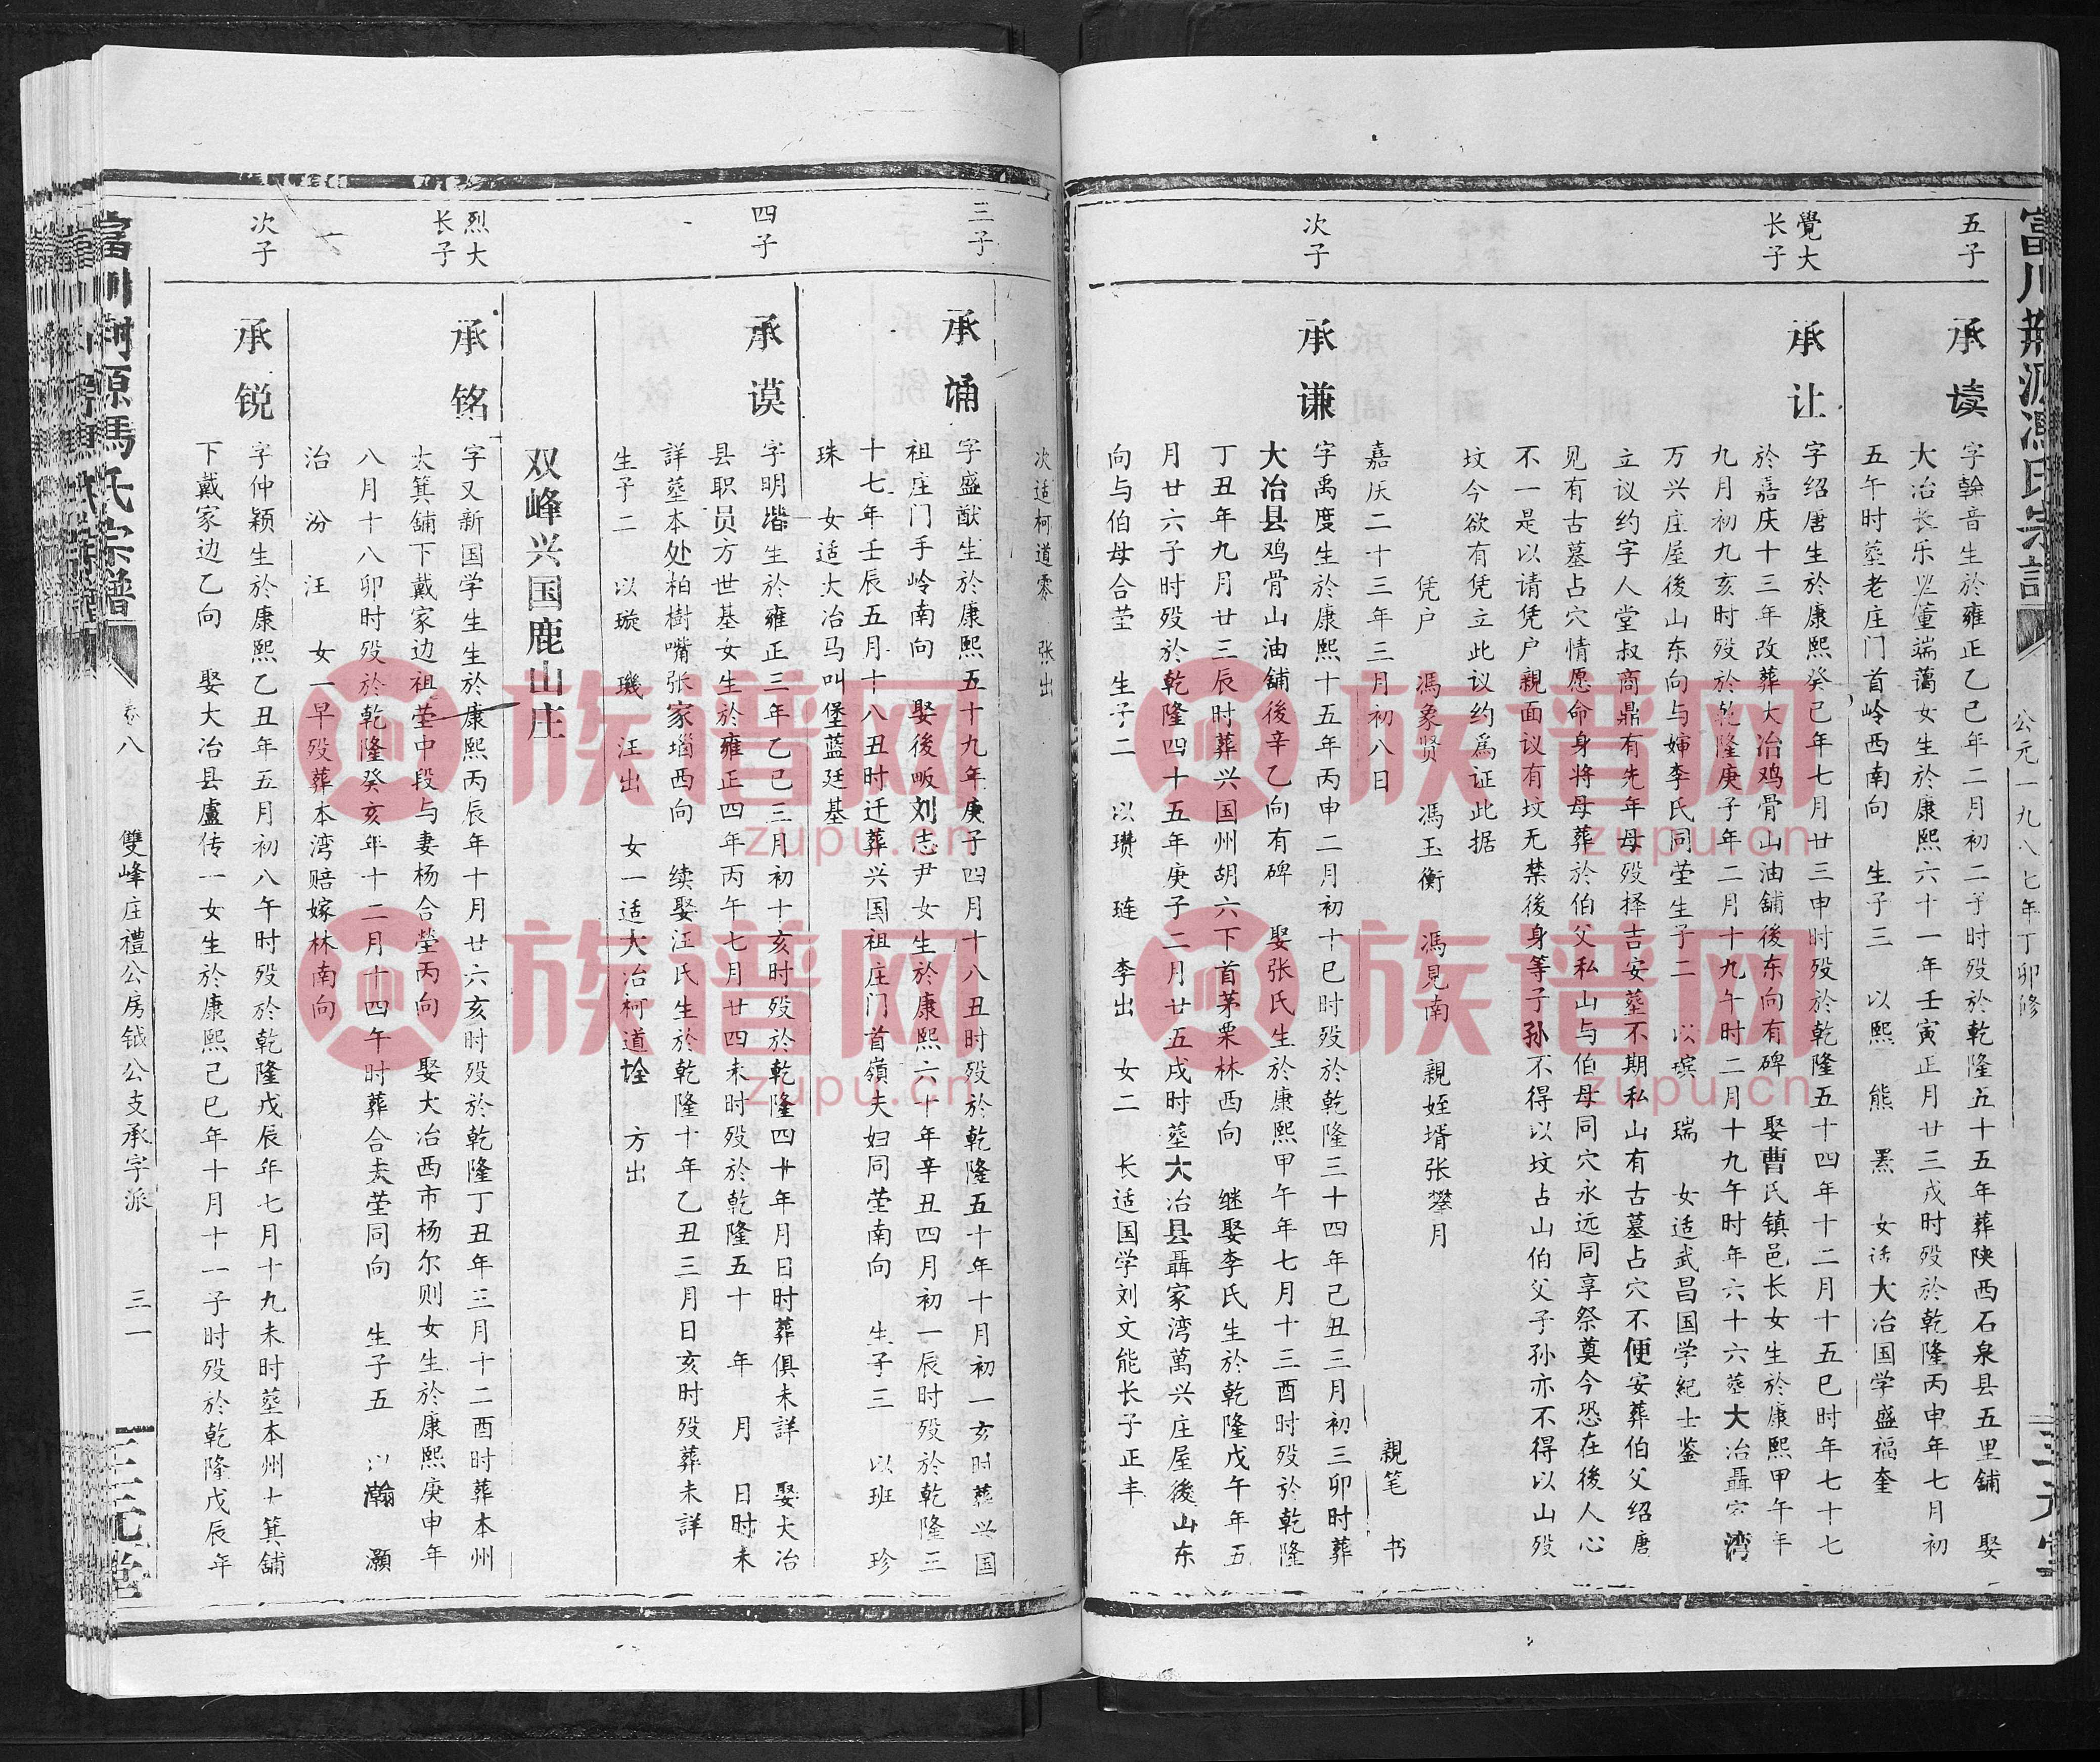 公元一九八七年丁卯修
五子
承读
字翰音生於雍正乙己年二月初二子时殁於乾隆五十五年葬陕西石泉县五里铺 娶
大冶长乐 董端蔼女生於康熙六十一年壬寅正月廿三戌时殁於乾隆丙申年七月初
五午时塟老庄门首岭西南向 生子三 以熙 熊 羆 女适大冶国学盛福奎
覺大长子
承让
字绍唐生於康熙癸己年七月廿三申时殁於乾隆五十四年十二月十五巳时年七十七
於嘉庆十三年改葬大冶鸡骨山油舖後东向有碑 娶曹氏镇邑长女生於康熙甲午年
九月初九亥时殁於乾隆庚子年二月十九午时二月十九午时年六十六塟大冶聶家湾
万兴庄屋後山东向与婶李氏同茔生子二 以瑸 瑞 女适武昌国学紀士鉴
立议约字人堂叔商鼎有先年母殁择吉安塟不期私山有古墓占穴不便安葬伯父绍唐
见有古墓占穴情愿命身将母葬於伯父私山与伯母同穴永远同享祭奠今恐在後人心
不一是以请凭户親面议有坟无禁後身等子孙不得以坟占山伯父子孙亦不得以山殁
坟今欲有凭立此议约爲证此据
凭户 馮象贤 馮玉衡 馮見南 親姪壻张攀月
嘉庆二十三年三月初八日 親笔 书
次子
承谦
字禹度生於康熙十五年丙申二月初十巳时殁於乾隆三十四年己丑三月初三卯时葬
大冶县鸡骨山油舖後辛乙向有碑 娶张氏生於康熙甲午年七月十三酉时殁於乾隆
丁丑年九月廿三辰时葬兴国州胡六下首茅栗林西向 继娶李氏生於乾隆戊午年五
月廿六子时殁於乾隆四十五年庚子二月廿五戌时塟大冶县聶家湾萬兴庄屋後山东
向与伯母合茔 生子二 以瓒 琏 李出 女二 长适国学刘文能长子正丰
次适柯道零 张出
三子
承诵
字盛猷生於康熙五十九年庚子四月十八丑时殁於乾隆五十年十月初一亥时葬兴国
祖庄门手岭南向 娶後畈刘志尹女生於康熙六十年辛丑四月初一辰时殁於乾隆三
十七年壬辰五月十八丑时迁葬兴国祖庄门首嶺夫妇同茔南向 生子三 以班 珍
珠 女适大冶马叫堡蓝廷基
四子
承谟
字明堦生於雍正三年乙巳三月初十亥时殁於乾隆四十年月日时葬俱未詳 娶大冶
县职员方世基女生於雍正四年丙午七月廿四未时殁於乾隆五十 年 月 日时未
詳塟本处柏樹嘴张家堖西向 续娶汪氏生於乾隆十年乙丑三月日亥时殁葬未詳
生子二 以璇 璣 汪出 女一适大冶柯道烇 方出
双峰兴国鹿山庄
烈大长子
承铭
字又新国学生生於康熙丙辰年十月廿六亥时殁於乾隆丁丑年三月十二酉时葬本州
太箕舖下戴家边祖茔中段与妻杨合塋丙向 娶大冶西市杨尔则女生於康熙庚申年
八月十八卯时殁於乾隆癸亥年十二月十四午时葬合夫茔同向 生子五 以瀚 灏
治 汾 汪 女一早殁葬本湾赔嫁林南向
次子
承锐
字仲颖生於康熙乙丑年五月初八午时殁於乾隆戊辰年七月十九未时塟本州大箕舖
下戴家边乙向 娶大冶县盧传一女生於康熙己巳年十月十一子时殁於乾隆戊辰年
富川荊源馮氏宗譜 卷八 雙峰庄禮公房钺公支承字派 三一 三元堂
族谱网
zupu.cn
族谱网
zupu.cn
族谱网
zupu.cn
族谱网
zupu.cn